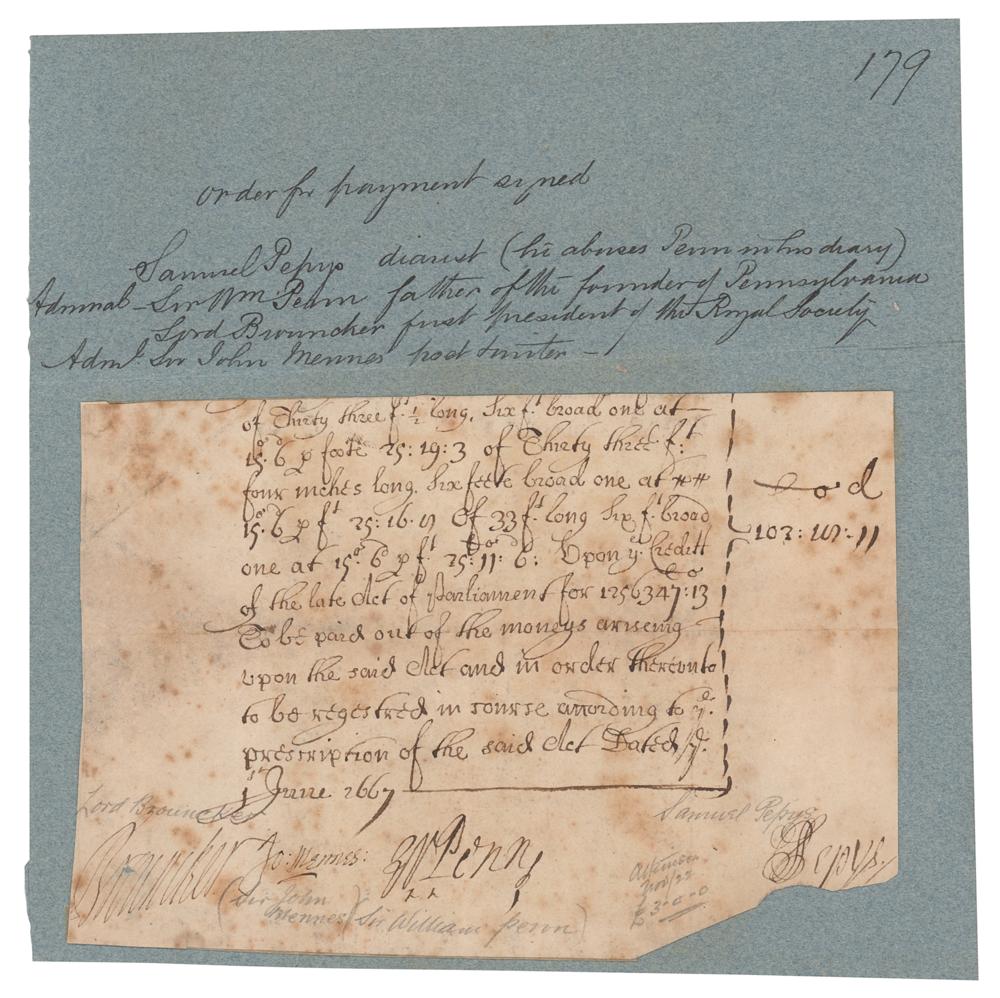 179
order for payment signed
Samuel Pepys diarist (he abuses Penn in his diary)
Admiral - Sir Wm. Penn father of the founder of Pennsylvania
Lord Brouncker first president of the Royal Society
Adml. Sir John Mennes post
of Thirty three f.t ½ long, six f.t broad one at
15s: 6d p foote 25: 19: 3 of Thirty three f.t
four inches long, six feete broad one at
15s: 6d p f.t 25: 16: Of 33 f.t long six f.t broad
one at 15s: 6d p f.t 25: 11: 6: Upon ye. Creditt
of the late Act of Parliament for 1256347: 13
To be paid out of the moneys ariseing
upon the said Act and in order thereunto
to be regestred in course according to ye.
prescription of the said Act Dated ye.
1st June 1667
d
11
Lord Brouncker
Samuel Pepys
Brouncker Jo: Mennes: W Penn S Pepys.
(Sir John Mennes)
(Sir William Penn)
£3-0-0